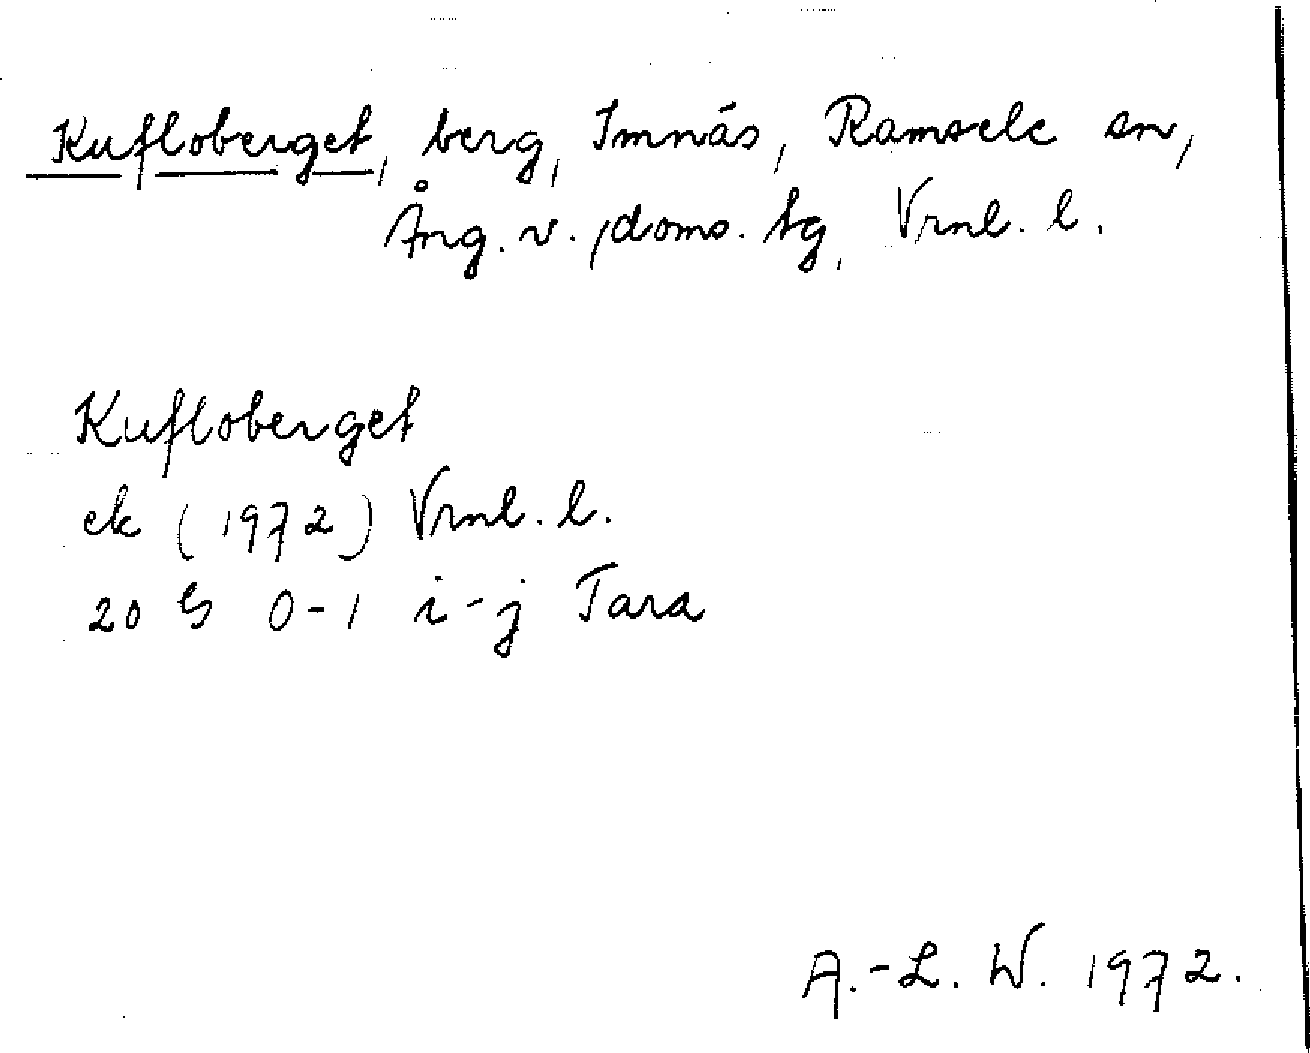 Kufloberget, berg, Imnäs, Ramsele sn,
Ång. v. doms. tg, Vrnl. l.
Kufloberget
ek (1972) Vrnl. l.
20 G 0-1 i-j Tara
A.-L. W. 1972.